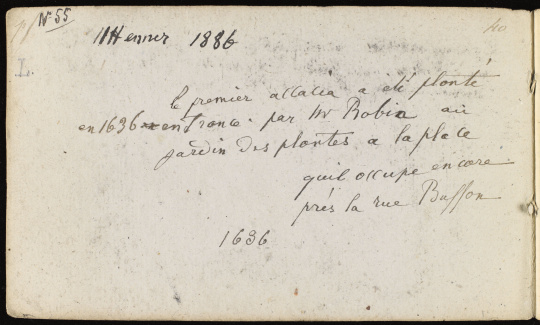 N° 55
40
L.
1886
le premier accacia a été planté
en 1636 en france. par Mr Robin au
jardin des plantes a la place
quil occupe encore
près la rue Buffon
1636